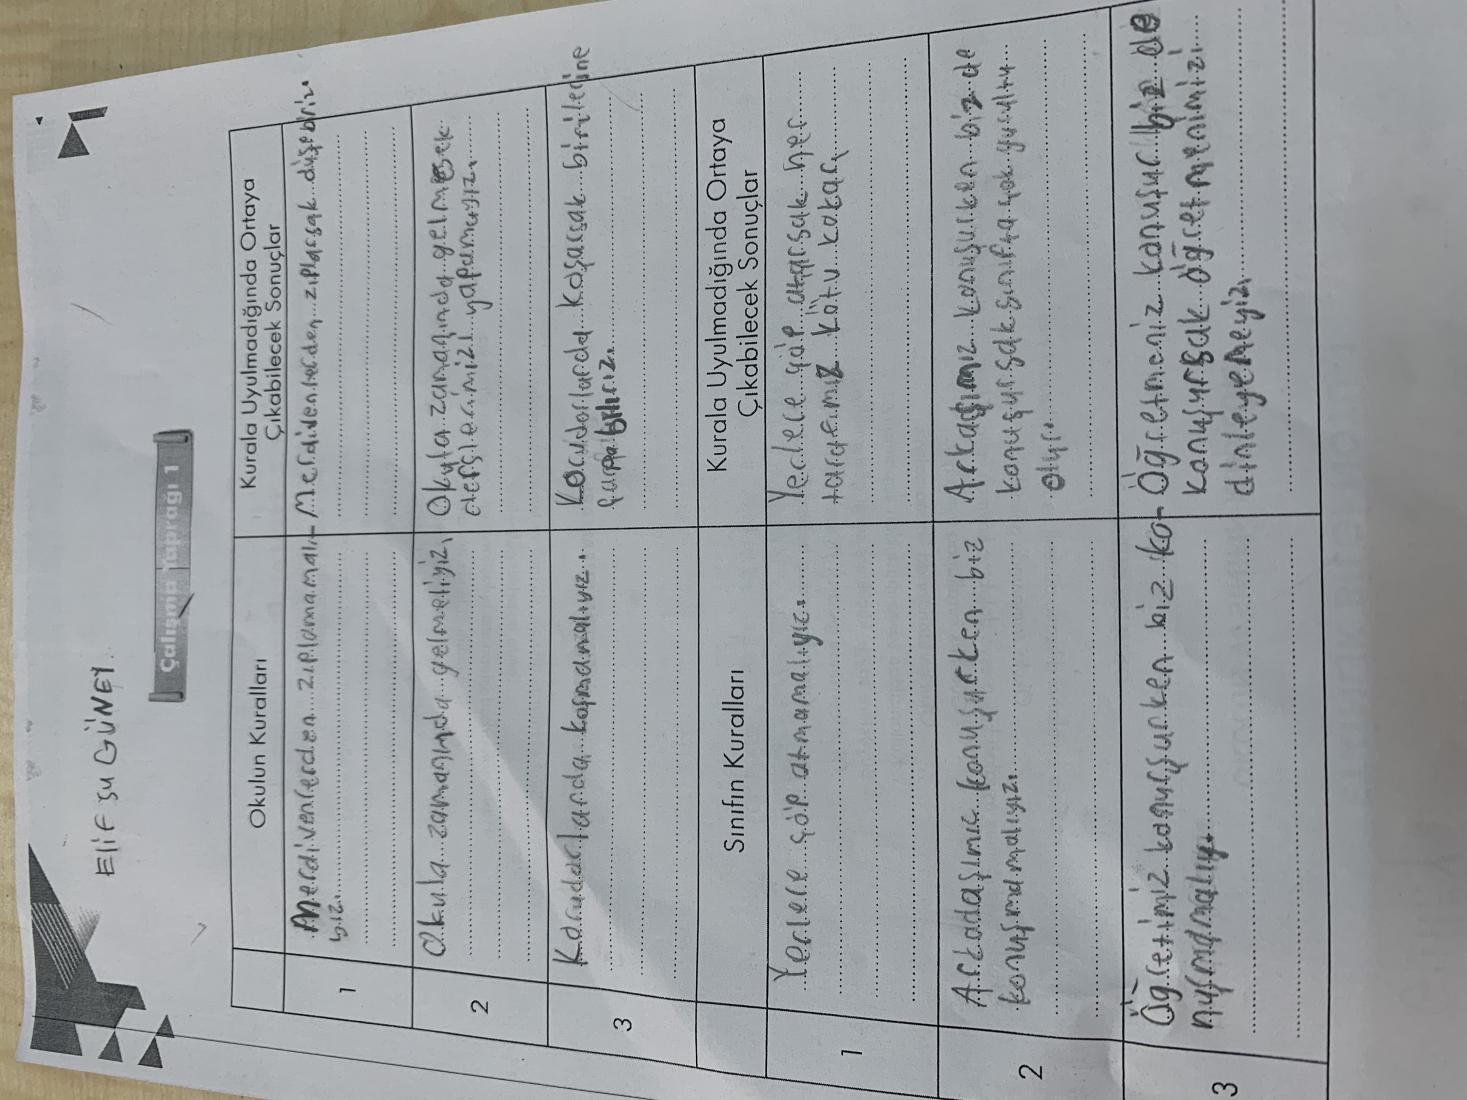 ELİF SU GÜNEY
Çalışma Yaprağı 1
Okulun Kuralları
Kurala Uyulmadığında Ortaya
Çıkabilecek Sonuçlar
1
Merdivenlerden zıplamamalı-
yız.
Merdivenlerden zıplarsak düşebiliriz.
2
Okula zamanında gelmeliyiz.
Okula zamanında gelmesek
derslerimizi yapamayız.
3
Korudorlarda koşmamalıyız.
Korudorlarda koşarsak birilerine
çarpabiliriz.
Sınıfın Kuralları
Kurala Uyulmadığında Ortaya
Çıkabilecek Sonuçlar
1
Yerlere çöp atmamalıyız.
Yerlere çöp atarsak her
tarafımız kötü kokar.
2
Arkadaşımız konuşurken biz
konuşmamalıyız.
Arkaşımız konuşurken biz de
konuşursak sınıfta çok gürültü
olur.
3
Öğretimiz konuşurken biz ko-
nuşmamalıyı.
Öğretmeniz konuşur biz de
konuşursak öğretmenimizi
dinleyemeyiz.